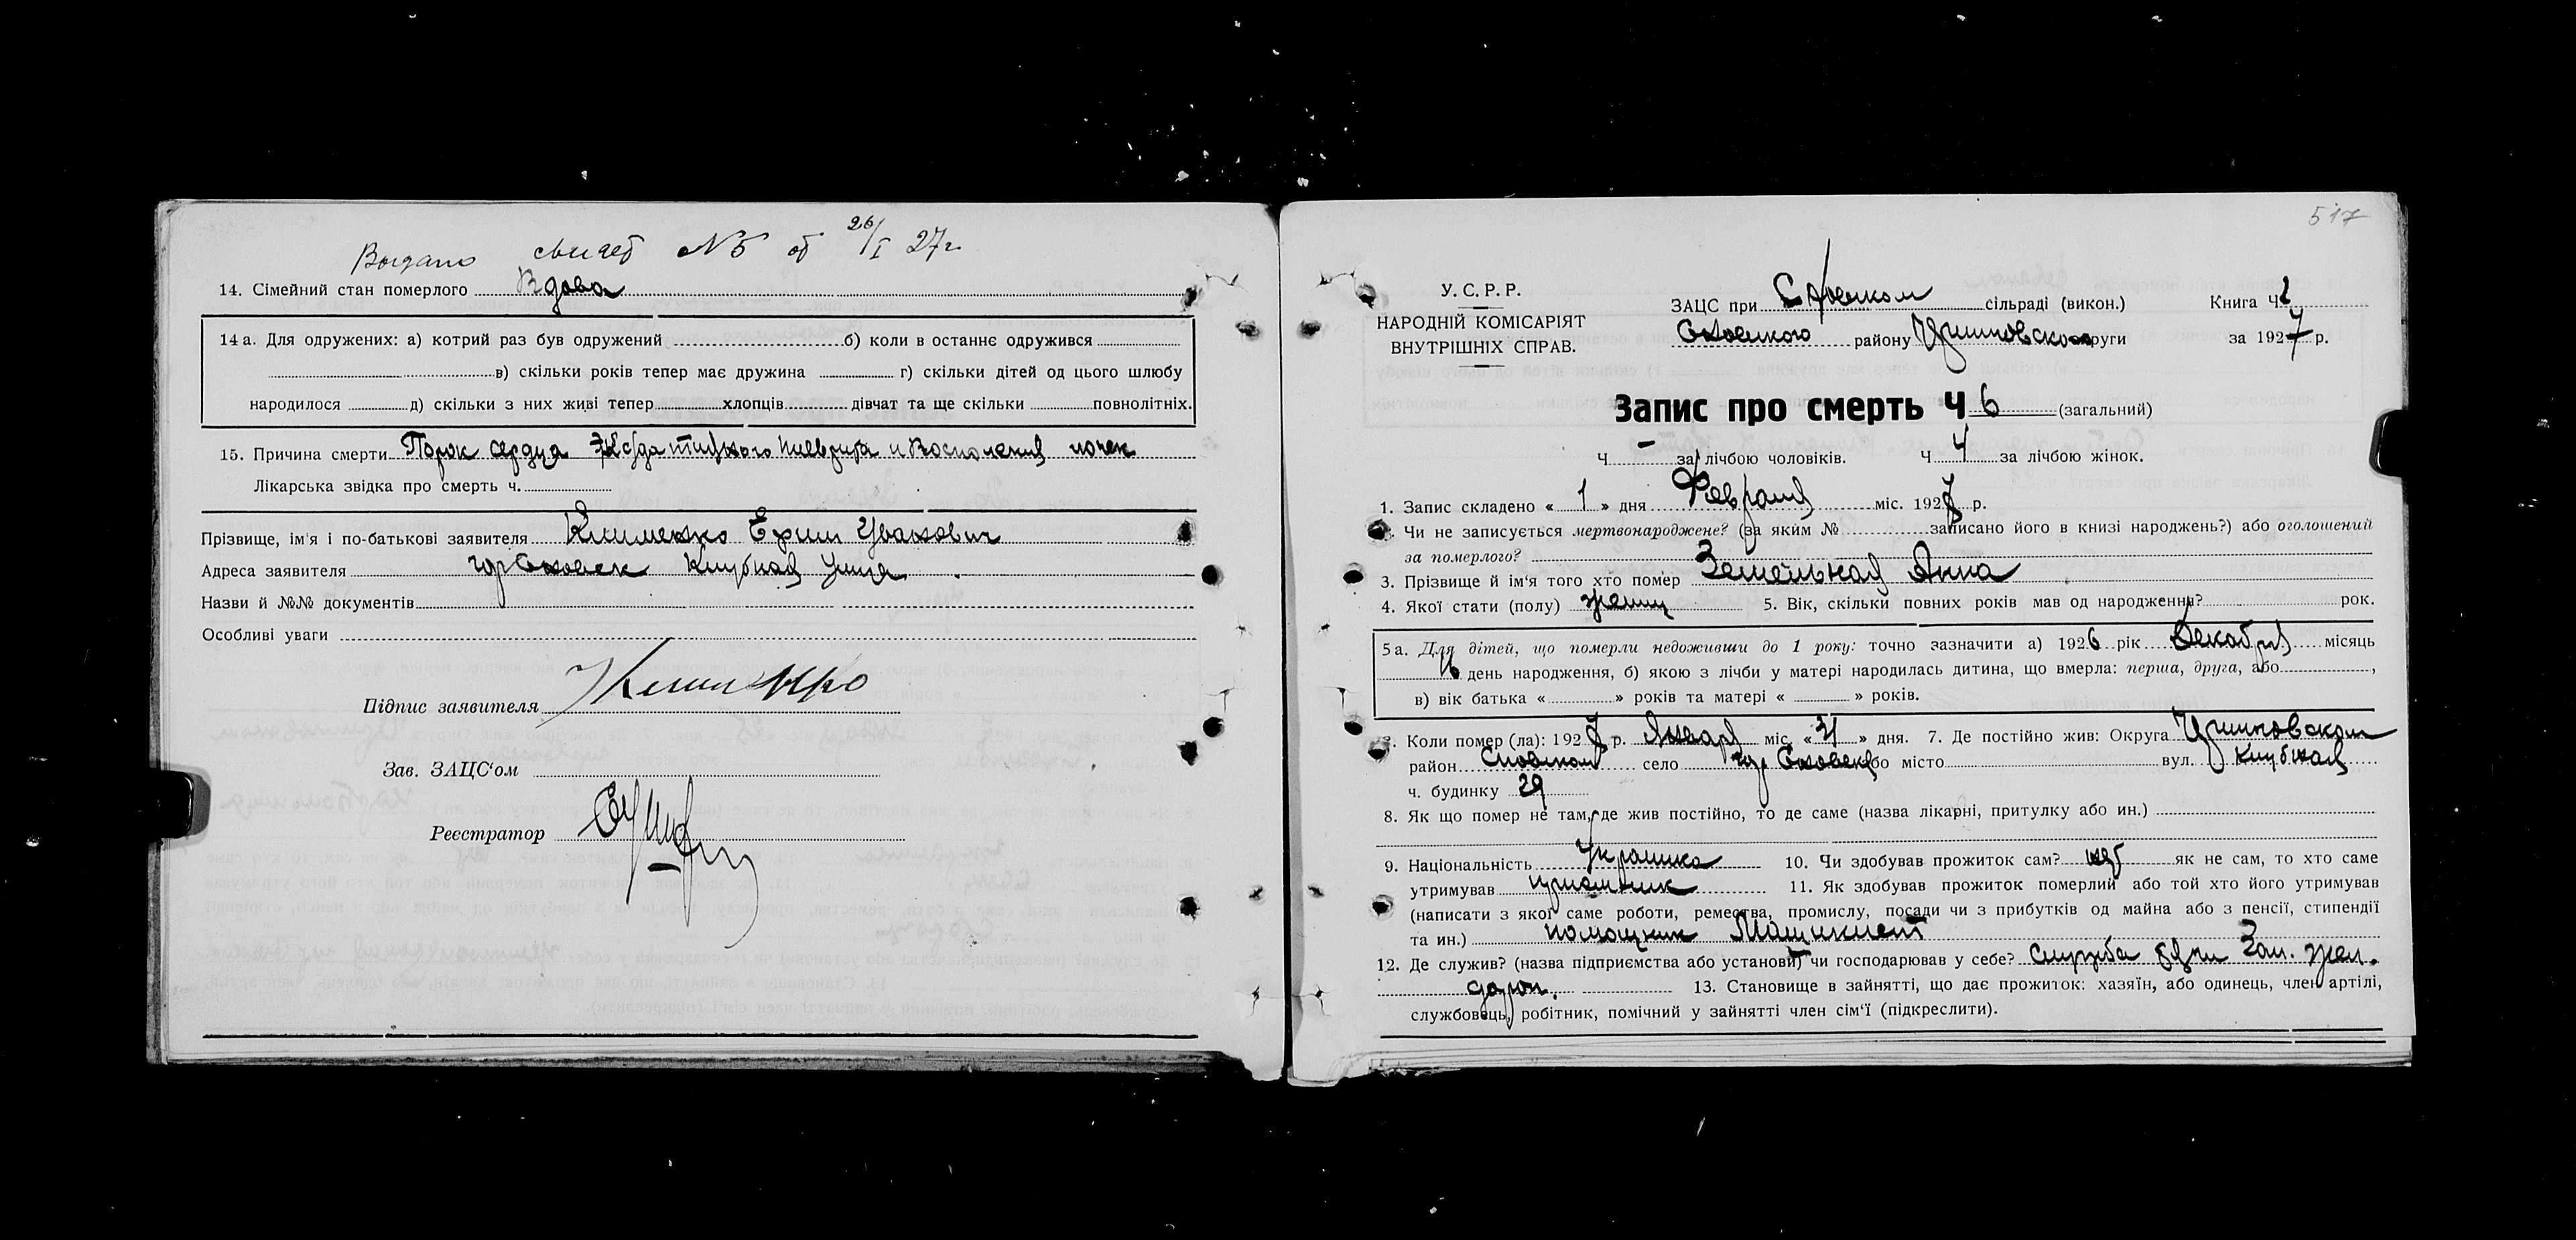 Выдано свидет №5 от 26/I 27г.
14. Сімейний стан померлого Вдова
14а. Для одружених: а) котрий раз був одружений б) коли в останнє одружився
в) скільки років тепер має дружина г) скільки дітей од цього шлюбу
народилося д) скільки з них живі тепер хлопців дівчат та ще скільки повнолітніх.
15. Причина смерти Порок сердца Эксудатицкого плеврита и Восполения почек
Лікарська звідка про смерть ч.
Прізвище, ім'я і по-батькові заявителя Клименко Ефим Иванович
Адреса заявителя Клубная улица
Назви й №№ документів
Особливі уваги
Підпис заявителя
Зав. ЗАЦС'ом
Реєстратор
517
У. С. Р. Р.
НАРОДНІЙ КОМІСАРІЯТ
ВНУТРІШНІХ СПРАВ.
ЗАЦС при сільраді (викон.) Книга Ч.
району округи за 1927 р.
Запис про смерть Ч 6 (загальний)
Ч — за лічбою чоловіків. Ч 4 за лічбою жінок.
1. Запис складено « 1 » дня Февраля міс. 1927 р.
2. Чи не записується мертвонароджене? (за яким № записано його в книзі народжень?) або оголошений
за померлого?
3. Прізвище й ім'я того хто помер Земельная Анна
4. Якої стати (полу) женщ 5. Вік, скільки повних років мав од народження? рок.
5а. Для дітей, що померли недоживши до 1 року: точно зазначити а) 1926 рік Декабря місяць
день народження, б) якою з лічби у матері народилась дитина, що вмерла: перша, друга, або ,
в) вік батька « » років та матері « » років.
6. Коли помер (ла): 1927 р. Января міс. «31» дня. 7. Де постійно жив: Округа
район село або місто вул. Клубная
ч. будинку 29
8. Як що помер не там, де жив постійно, то де саме (назва лікарні, притулку або ин.)
9. Національність Украинка 10. Чи здобував прожиток сам? нет як не сам, то хто саме
утримував 11. Як здобував прожиток померлий або той хто його утримував
(написати з якої саме роботи, ремества, промислу, посади чи з прибутків од майна або з пенсії, стипендії
та ин.) помощник Машинист
12. Де служив? (назва підприємства або установи) чи господарював у себе? Служба Тяги Зап. жел.
дорог. 13. Становище в зайнятті, що дає прожиток: хазяїн, або одинець, член артілі,
службовець, робітник, помічний у зайнятті член сім'ї (підкреслити).